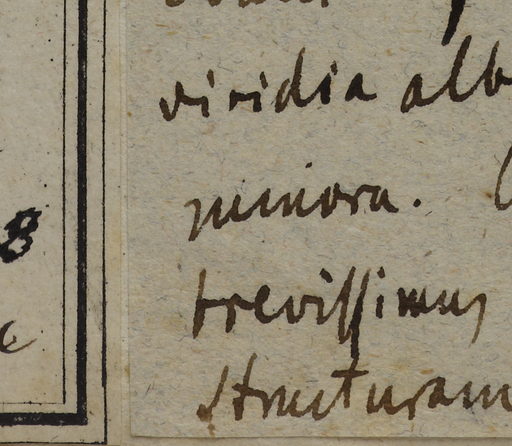 viridia alb
minora.
brevissimus
structuram
8